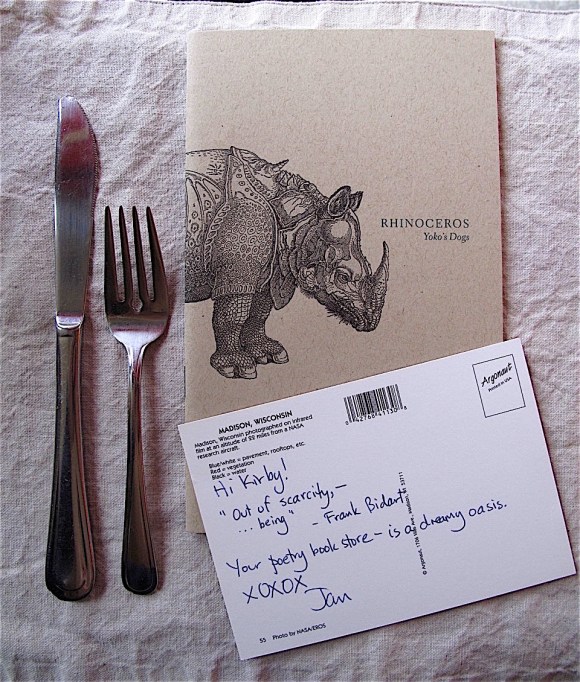 RHINOCEROS
Yoko's Dogs
MADISON, WISCONSIN
Madison, Wisconsin photographed on infrared
film at an altitude of 22 miles from a NASA
research aircraft.
Blue/white = pavement, rooftops, etc.
Red = vegetation
Black = water
Argonaut
Printed in USA
Hi Kirby!
"Out of scarcity,—
... being" - Frank Bidart.
Your poetry book store - is a dreamy oasis.
XOXOX
Jan
55 Photo by NASA/EROS